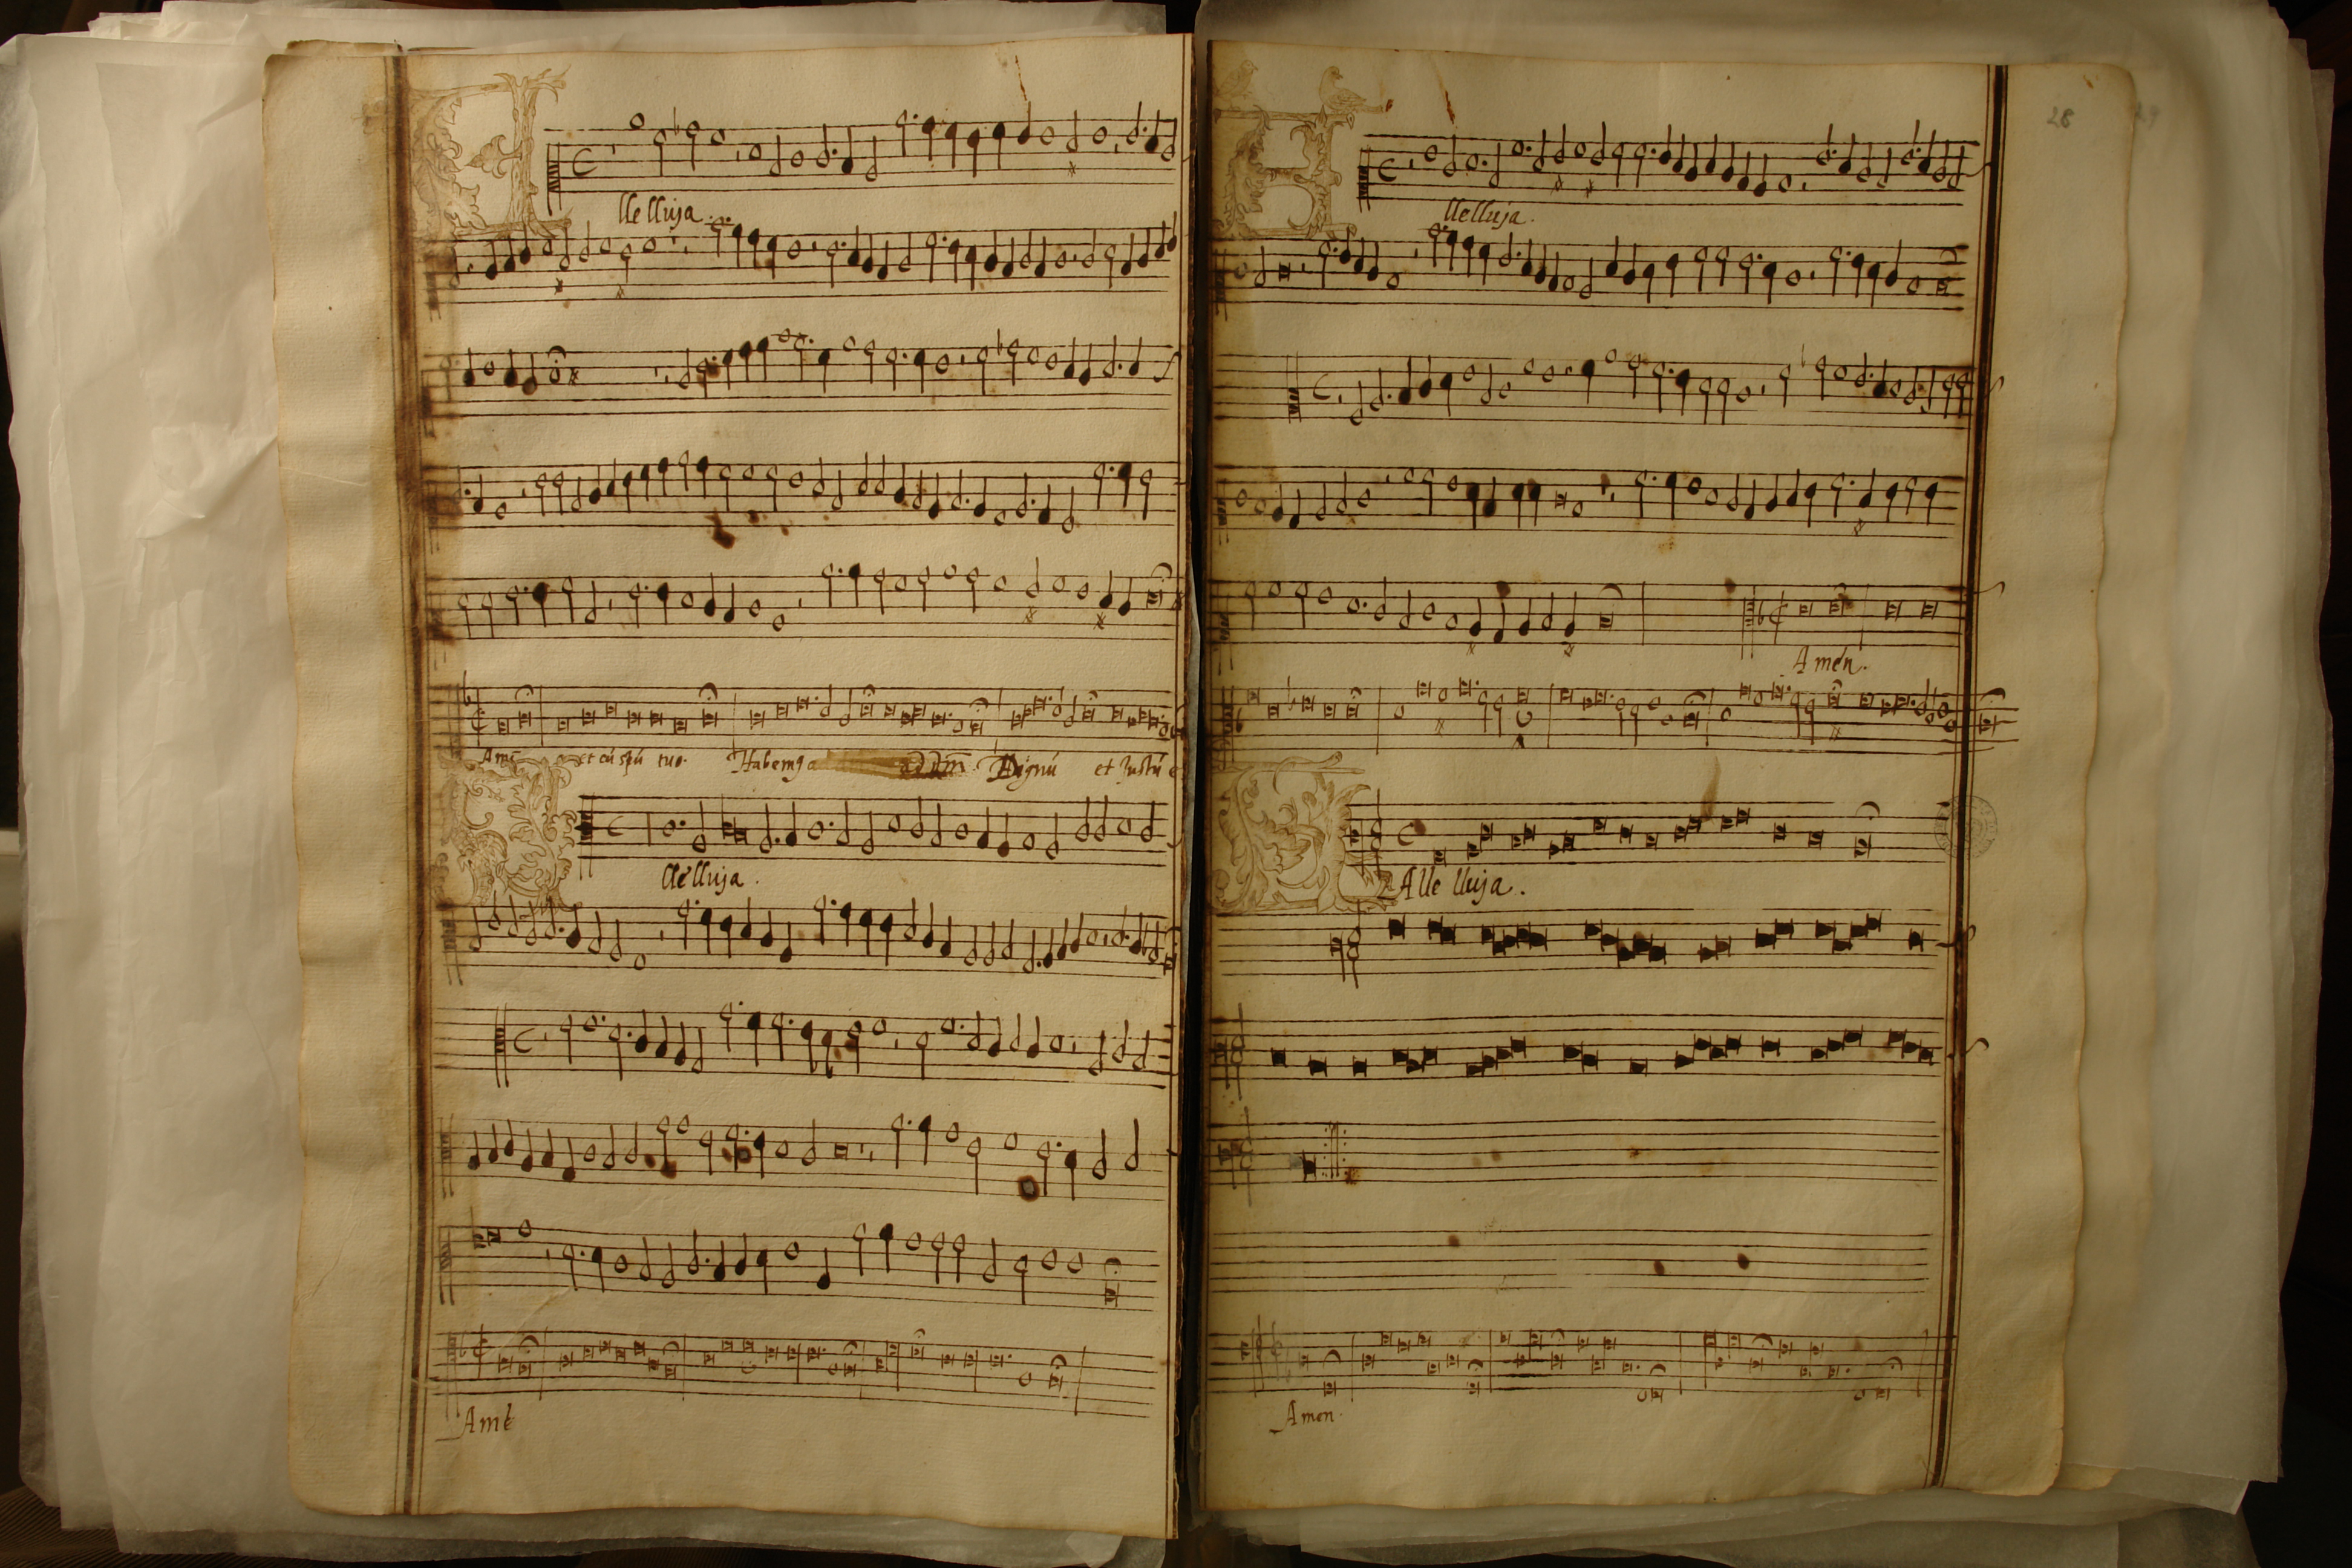 lle lluja.
Amē et cū spū tuo. Habemg a ad dm̄. Dignū et Justū e
lle lluja.
Amē
28
lle lluja.
Amén.
Alle lluja.
Amen.